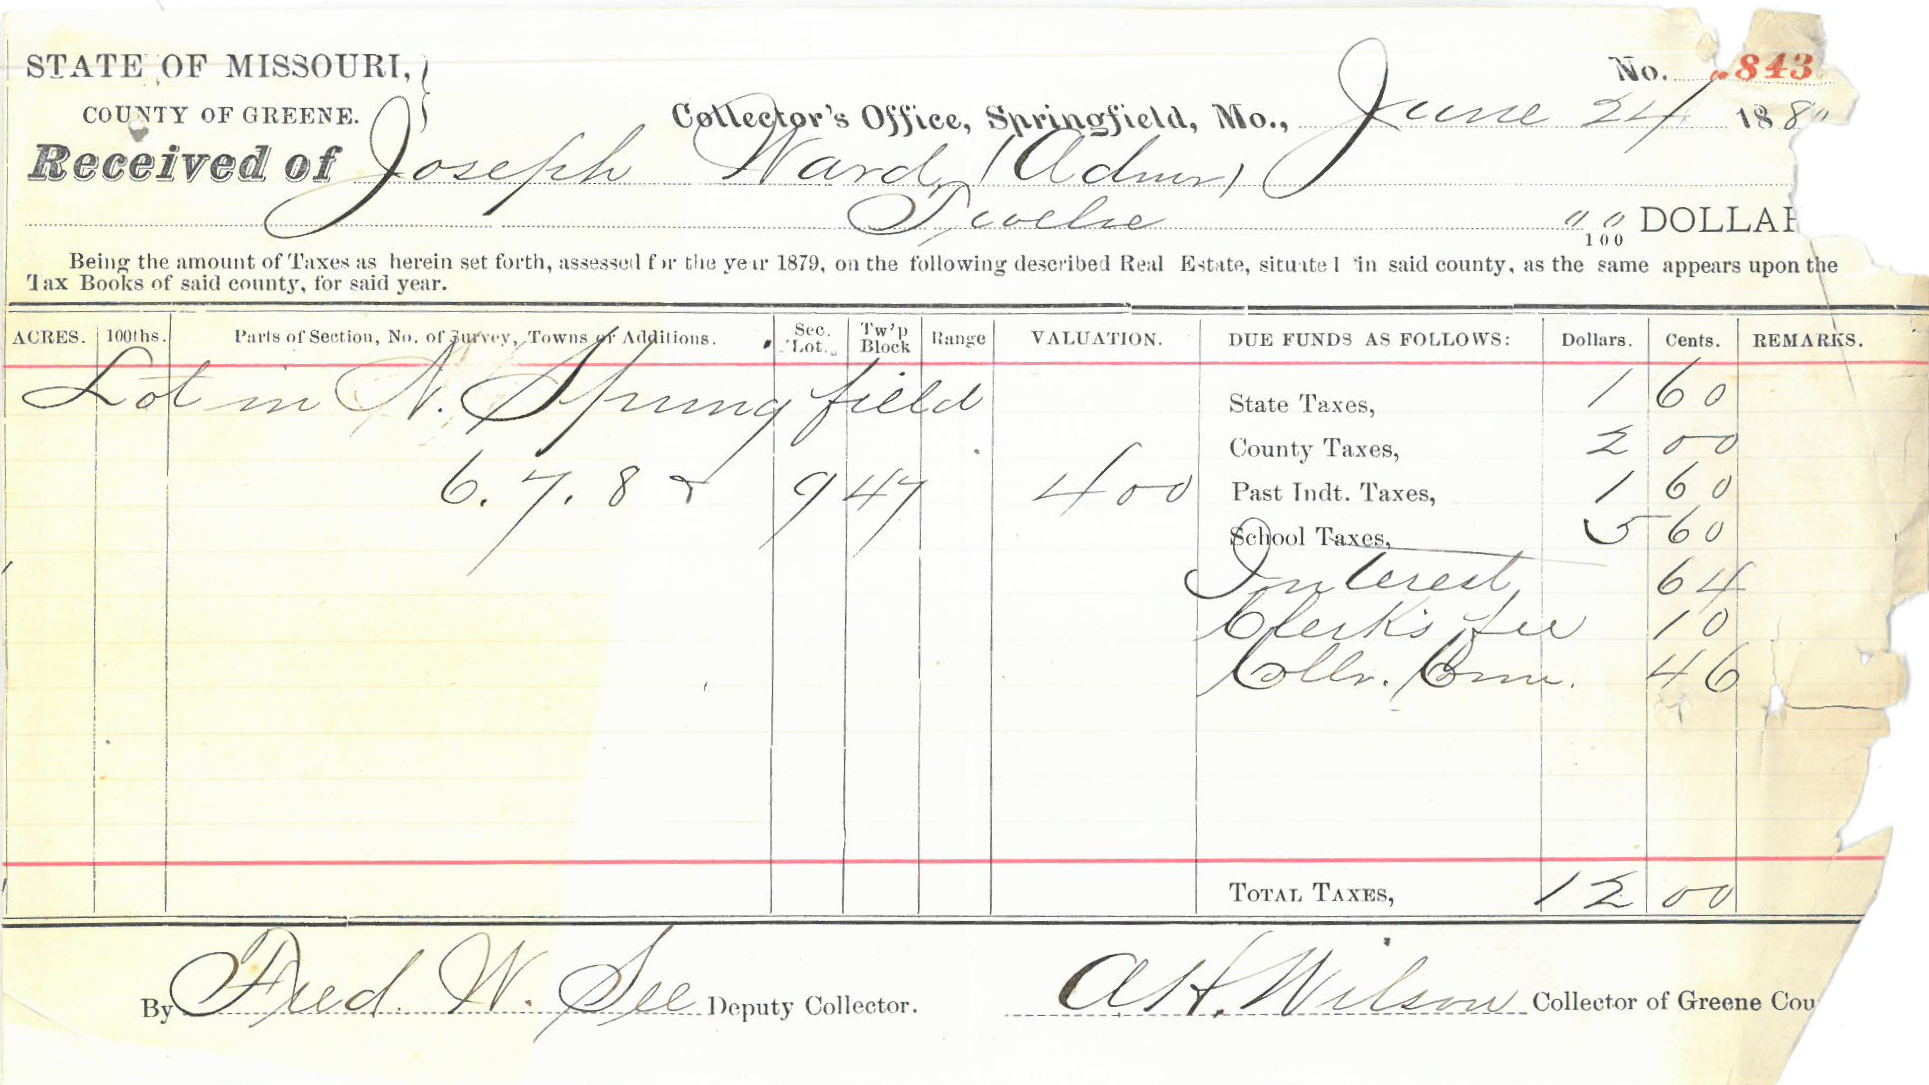 STATE OF MISSOURI, }
COUNTY OF GREENE.
No. 843
Collector's Office, Springfield, Mo., June 24 188"
Received of Joseph Ward, (Admr)
Twelve " " /100 DOLLAR
Being the amount of Taxes as herein set forth, assessed for the year 1879, on the following described Real Estate, situated in said county, as the same appears upon the
Tax Books of said county, for said year.
ACRES. 100ths. Parts of Section, No. of Survey, Towns or Additions. Sec. Lot. Tw'p Block Range VALUATION. DUE FUNDS AS FOLLOWS: Dollars. Cents. REMARKS.
Lot in N. Springfield State Taxes, 1 60
County Taxes, 2 00
6. 7. 8 & 9 47 400 Past Indt. Taxes, 1 60
School Taxes, 5 60
Interest 64
Clerk's fee 10
Collr. Com. 46
TOTAL TAXES, 12 00
By Fred. W. See Deputy Collector. A.H. Wilson Collector of Greene Cou